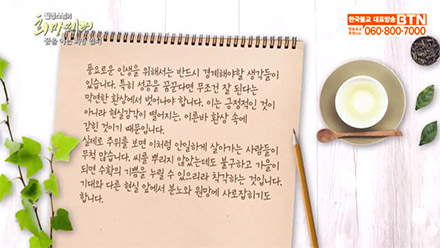 희망의 경
한국불교 대표방송 BTN
060-800-7000
풍요로운 인생을 위해서는 반드시 경계해야할 생각들이
있습니다. 특히 성공을 꿈꾼다면 무조건 잘 된다는
막연한 환상에서 벗어나야 합니다. 이는 긍정적인 것이
아니라 현실감각이 떨어지는, 이른바 환상 속에
갇힌 것이기 때문입니다.
실제로 주위를 보면 이처럼 안일하게 살아가는 사람들이
무척 많습니다. 씨를 뿌리지 않았는데도 불구하고 가을이
되면 수확의 기쁨을 누릴 수 있으리라 착각하는 것입니다.
기대와 다른 현실 앞에서 분노와 원망에 사로잡히기도
합니다.